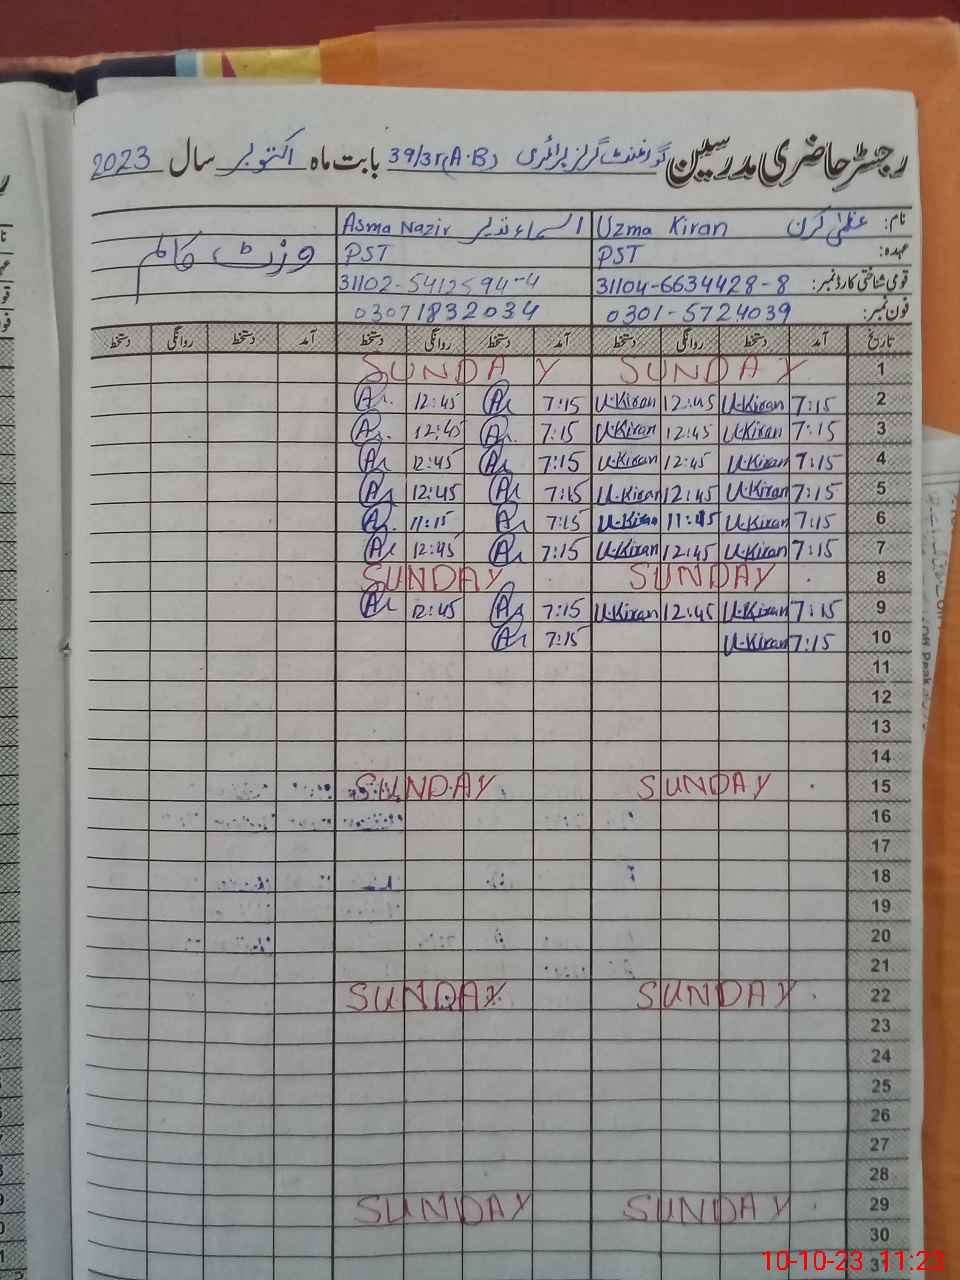 رجسٹر حاضری مدرسین گورنمنٹ گرلز پرائمری 39/3R(A.B) بابت ماہ اکتوبر سال 2023
نام: عظمیٰ کرن Uzma Kiran اسماء نذیر Asma Nazir وزٹ کالم
عہدہ: PST PST
قومی شناختی کارڈ نمبر: 31104-6634428-8 31102-5412594-4
فون نمبر: 0301-5724039 03071832034
تاریخ آمد دستخط روانگی دستخط آمد دستخط روانگی دستخط آمد دستخط روانگی دستخط
1 SUNDAY SUNDAY
2 7:15 U.Kiran 12:45 U.Kiran 7:15 12:45
3 7:15 U.Kiran 12:45 U.Kiran 7:15 12:45
4 7:15 U.Kiran 12:45 U.Kiran 7:15 12:45
5 7:15 U.Kiran 12:45 U.Kiran 7:15 12:45
6 7:15 U.Kiran U.Kiran 7:15 11:15
7 7:15 U.Kiran 12:45 U.Kiran 7:15 12:45
8 SUNDAY SUNDAY
9 7:15 U.Kiran 12:45 U.Kiran 7:15 12:45
10 7:15 U.Kiran 7:15
11
12
13
14
15 SUNDAY SUNDAY
16
17
18
19
20
21
22 SUNDAY SUNDAY
23
24
25
26
27
28
29 SUNDAY SUNDAY
30
31
10-10-23 11:23